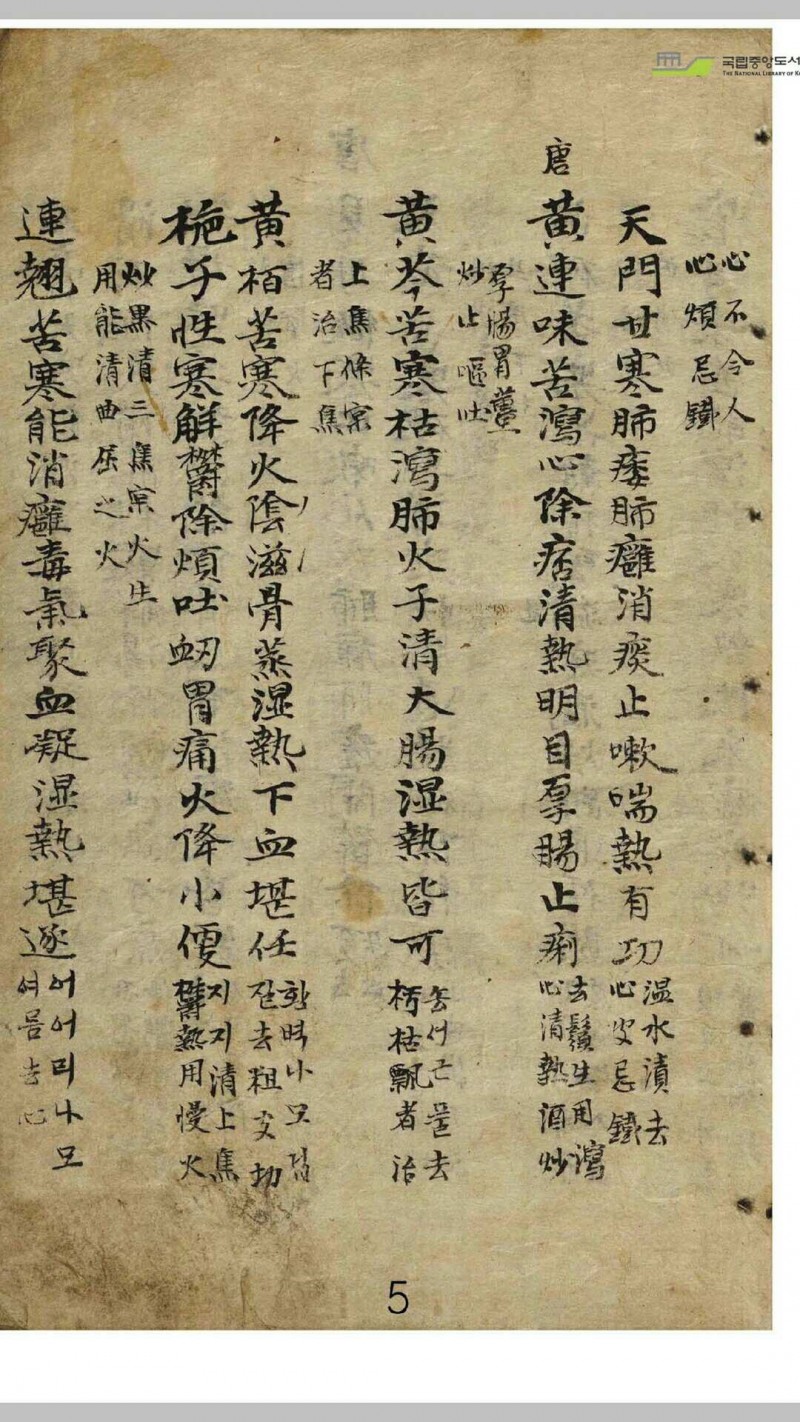 국립중앙도서
THE NATIONAL LIBRARY OF K
心不令人
心煩忌鐵
天門甘寒肺痿肺癰消痰止嗽喘熱有功
温水漬去
心皮忌鐵
唐
黄連味苦瀉心除痞清熱明目厚腸止痢
去鬚生用瀉
心清熱酒炒
厚腸胃薑
炒止嘔吐
黄芩苦寒枯瀉肺火子清大腸湿熱皆可
솝서근플去
朽枯飄者治
上焦條宲
者治下焦
黄栢苦寒降火陰滋骨蒸湿熱下血堪任
황벽나모겁
질去粗皮切
栀子性寒解欝除煩吐衂胃痛火降小便
지지清上焦
欝熱用慢火
炒黒清三焦宲火生
用能清曲屈之火
連翹苦寒能消癰毒氣聚血凝湿熱堪逐
어어리나모
여름去心
5